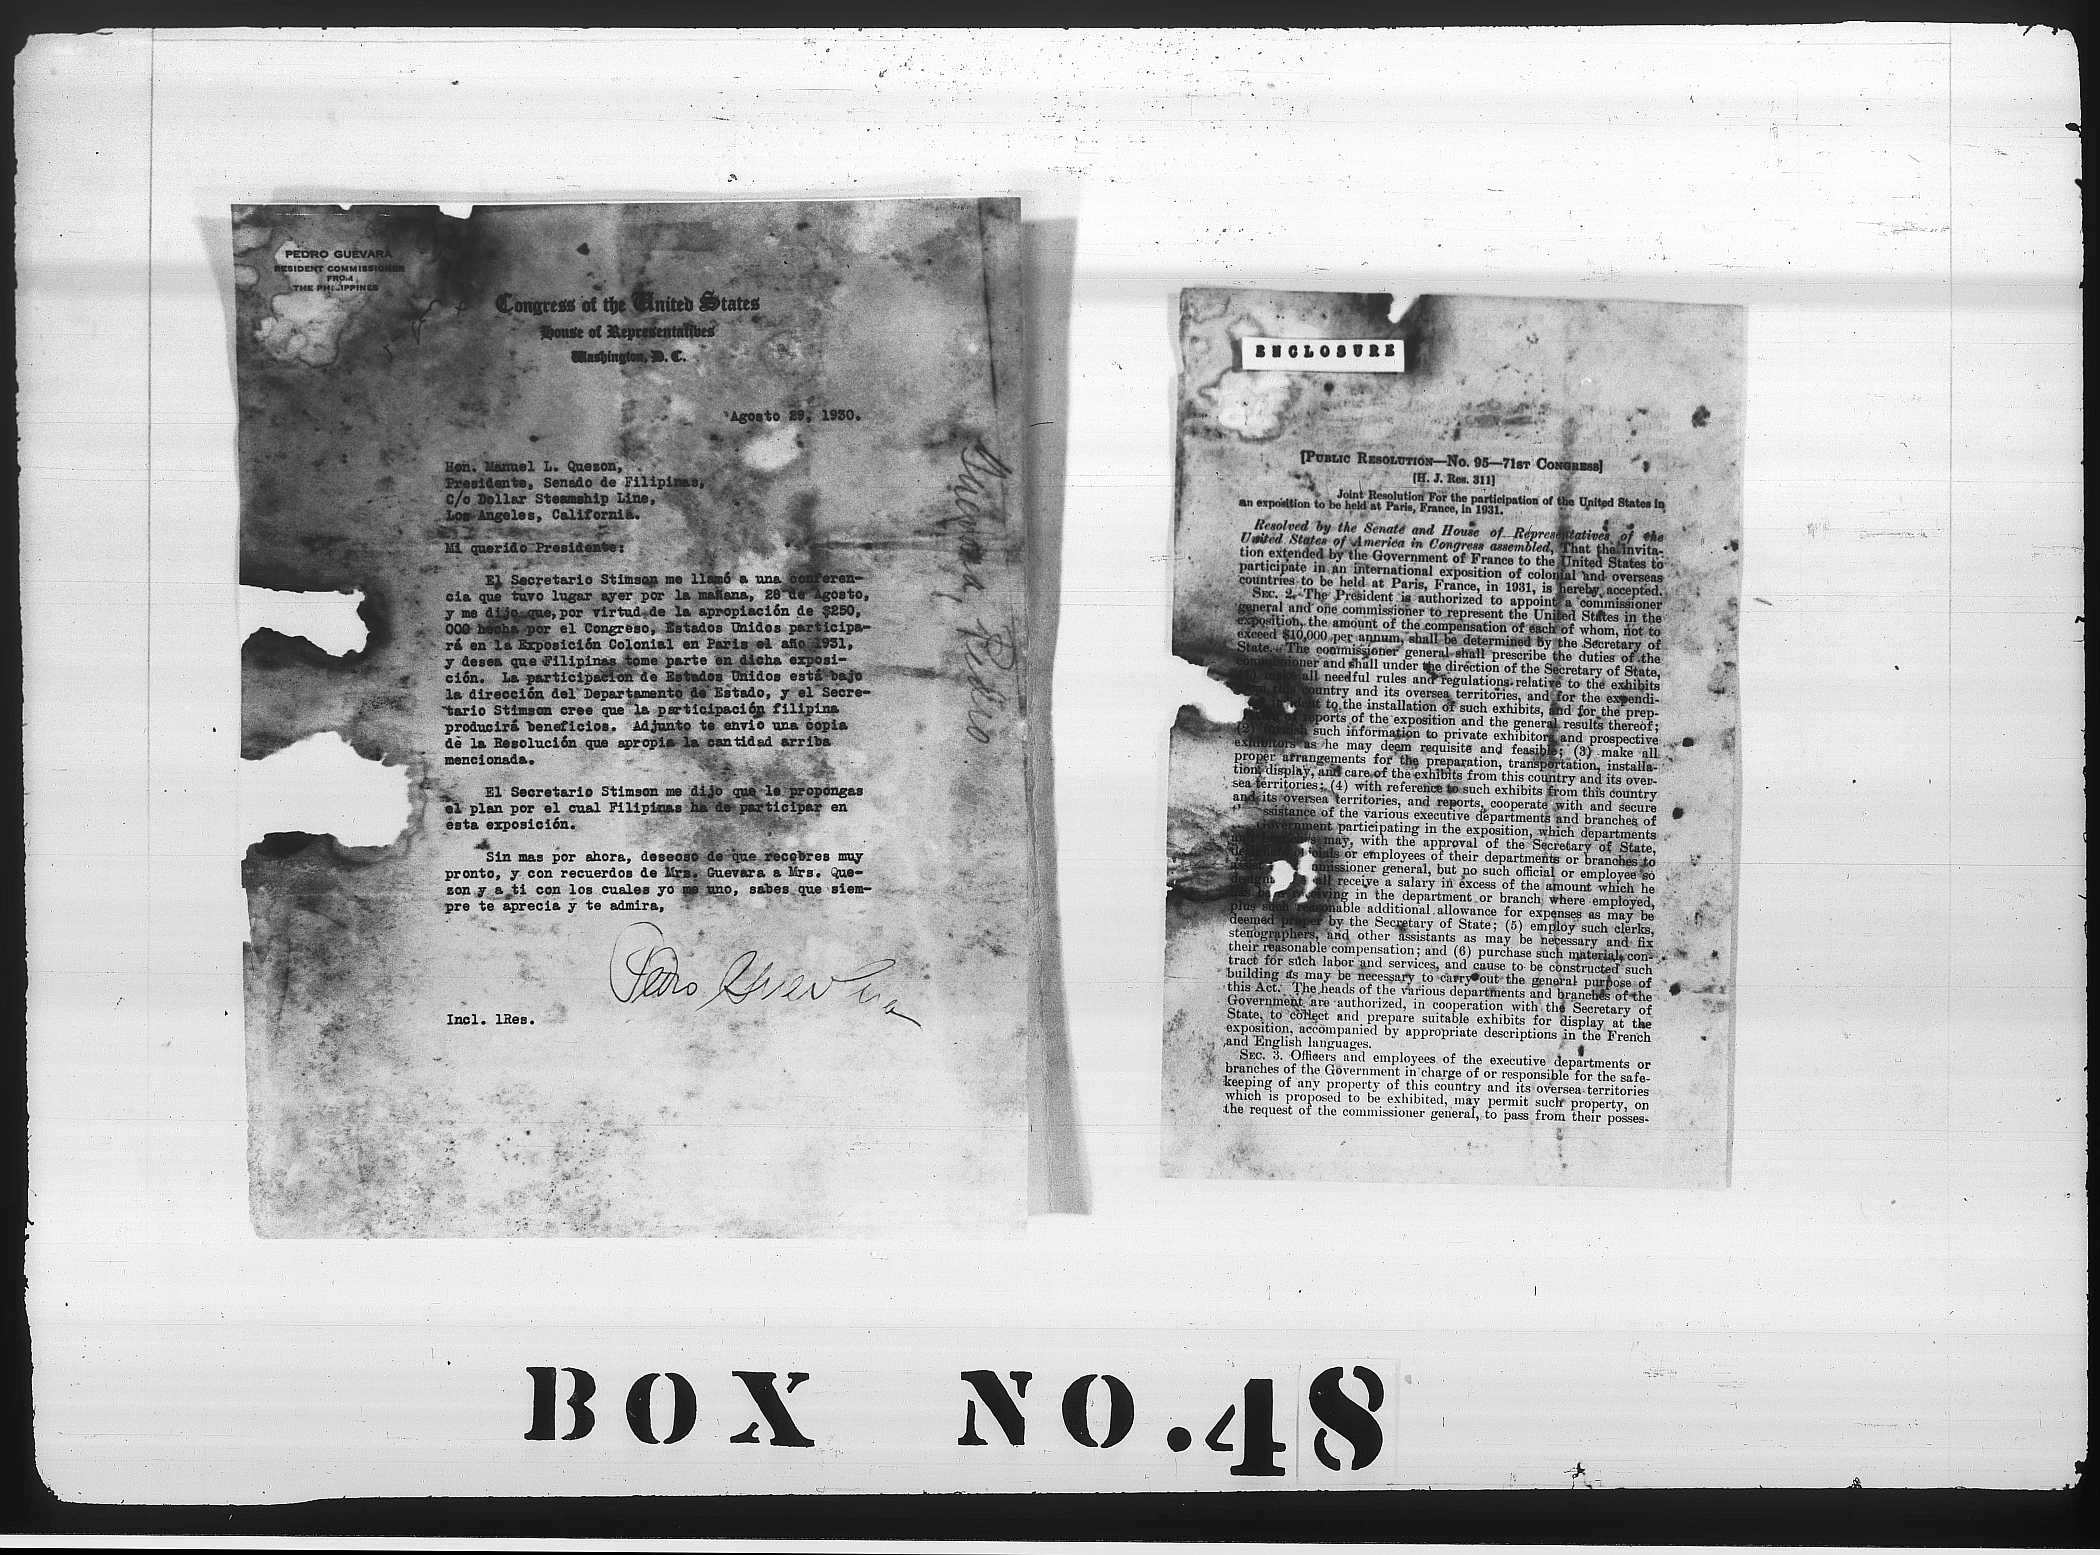 PEDRO GUEVARA
RESIDENT COMMISSIONER
FROM
THE PHILIPPINES
Congress of the United States
House of Representatives
Washington, D. C.
Agosto 29, 1930.
Hon. Manuel L. Quezon,
Presidente, Senado de Filipinas,
C/o Dollar Steamship Line,
Los Angeles, California.
Mi querido Presidente:
El Secretario Stimson me llamó a una conferen-
cia que tuvo lugar ayer por la mañana, 28 de Agosto,
y me dijo que, por virtud de la apropiación de $250,
000 hecha por el Congreso, Estados Unidos participa-
rá en la Exposición Colonial en Paris el año 1931,
y desea que Filipinas tome parte en dicha exposi-
ción. La participación de Estados Unidos está bajo
la dirección del Departamento de Estado, y el Secre-
tario Stimson cree que la participación filipina
producirá beneficios. Adjunto te envio una copia
de la Resolución que apropia la cantidad arriba
mencionada.
El Secretario Stimson me dijo que le propongas
el plan por el cual Filipinas ha de participar en
esta exposición.
Sin mas por ahora, deseoso de que recobres muy
pronto, y con recuerdos de Mrs. Guevara a Mrs. Que-
zon y a ti con los cuales yo me uno, sabes que siem-
pre te aprecia y te admira,
Pedro Guevara
Incl. 1Res.
Guevara, Pedro
ENCLOSURE
[PUBLIC RESOLUTION—NO. 95—71ST CONGRESS]
[H. J. Res. 311]
Joint Resolution For the participation of the United States in
an exposition to be held at Paris, France, in 1931.
Resolved by the Senate and House of Representatives of the
United States of America in Congress assembled, That the invita-
tion extended by the Government of France to the United States to
participate in an international exposition of colonial and overseas
countries to be held at Paris, France, in 1931, is hereby accepted.
SEC. 2. The President is authorized to appoint a commissioner
general and one commissioner to represent the United States in the
exposition, the amount of the compensation of each of whom, not to
exceed $10,000 per annum, shall be determined by the Secretary of
State. The commissioner general shall prescribe the duties of the
commissioner and shall under the direction of the Secretary of State,
make all needful rules and regulations relative to the exhibits
country and its oversea territories, and for the expendi-
to the installation of such exhibits, and for the prep-
reports of the exposition and the general results thereof;
(2) furnish such information to private exhibitors and prospective
exhibitors as he may deem requisite and feasible; (3) make all
proper arrangements for the preparation, transportation, installa-
tion, display, and care of the exhibits from this country and its over-
sea territories; (4) with reference to such exhibits from this country
and its oversea territories, and reports, cooperate with and secure
ssistance of the various executive departments and branches of
Government participating in the exposition, which departments
may, with the approval of the Secretary of State,
or employees of their departments or branches to
commissioner general, but no such official or employee so
receive a salary in excess of the amount which he
receiving in the department or branch where employed,
plus such reasonable additional allowance for expenses as may be
deemed proper by the Secretary of State; (5) employ such clerks,
stenographers, and other assistants as may be necessary and fix
their reasonable compensation; and (6) purchase such material, con-
tract for such labor and services, and cause to be constructed such
building as may be necessary to carry out the general purpose of
this Act. The heads of the various departments and branches of the
Government are authorized, in cooperation with the Secretary of
State, to collect and prepare suitable exhibits for display at the
exposition, accompanied by appropriate descriptions in the French
and English languages.
SEC. 3. Officers and employees of the executive departments or
branches of the Government in charge of or responsible for the safe-
keeping of any property of this country and its oversea territories
which is proposed to be exhibited, may permit such property, on
the request of the commissioner general, to pass from their posses-
BOX NO. 48